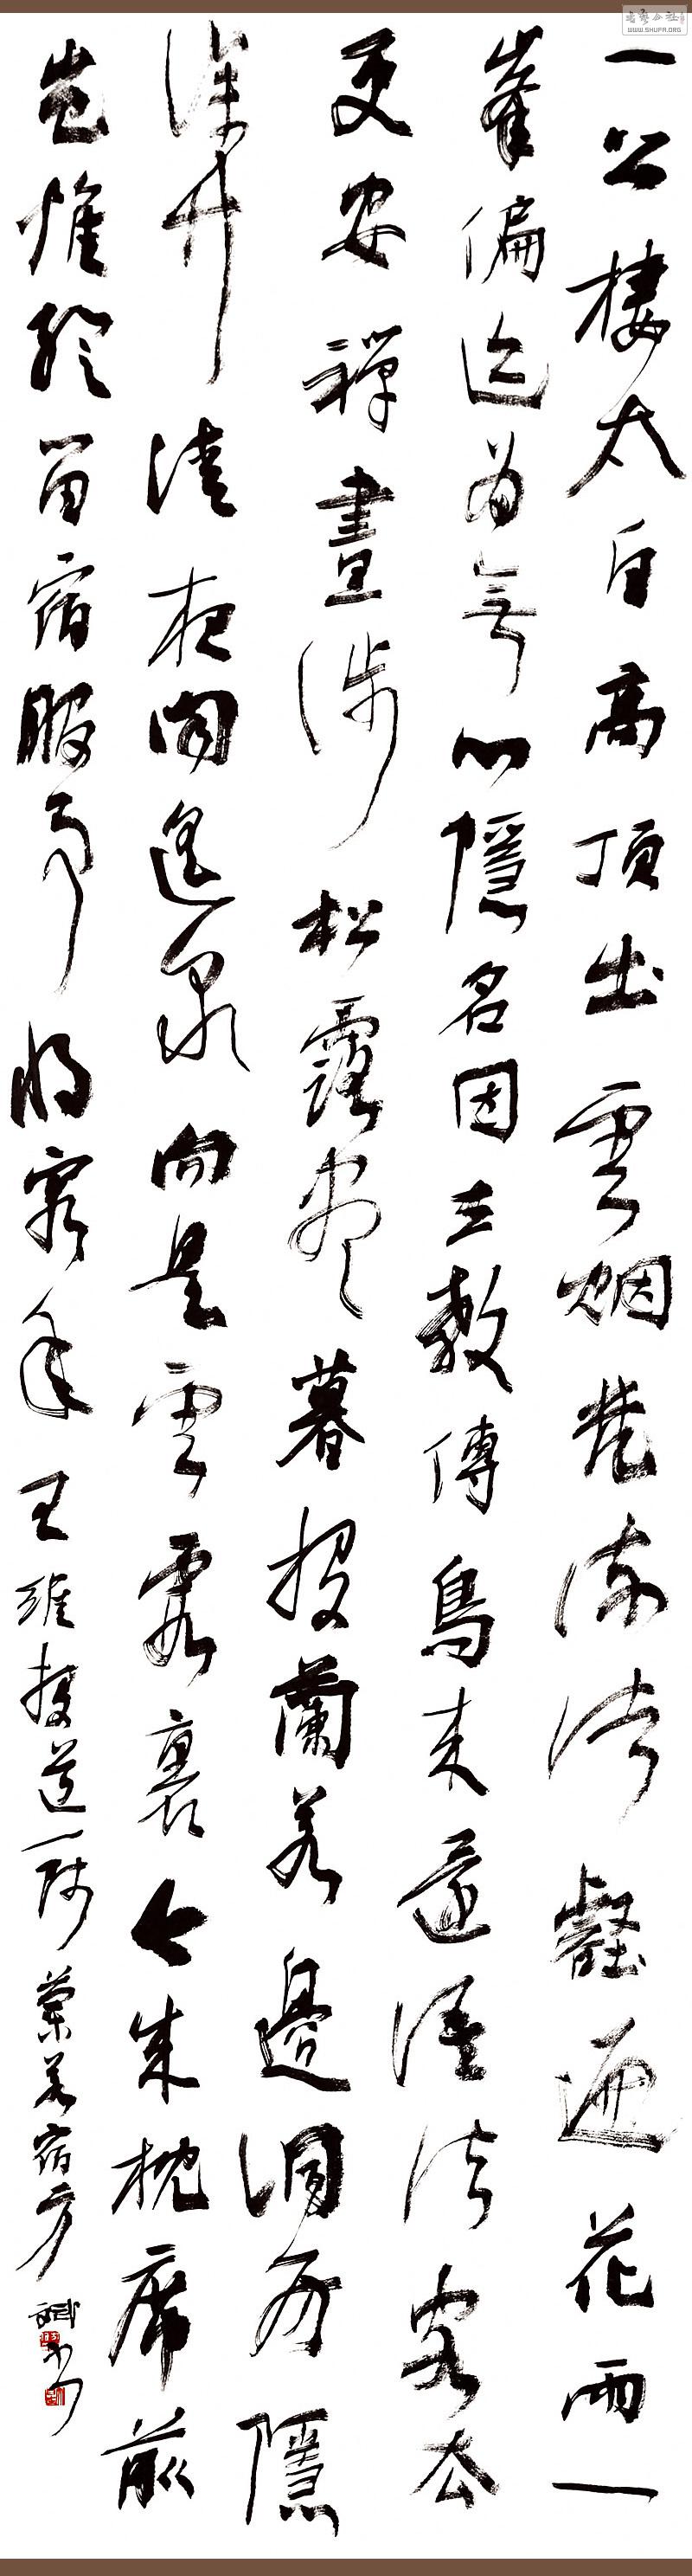 一公棲太白高頂出雲烟梵流諸壑遍花雨一
峯偏迹為無心隱名因立教傳鳥来還語法客去
更安禪晝涉松露盡暮投蘭若邊洞房隱
深竹清夜聞遙泉向是雲霞裏今成枕席前
豈惟留宿服事將窮年王維投道一師蘭若宿方斌書
WWW.SHUFA.ORG